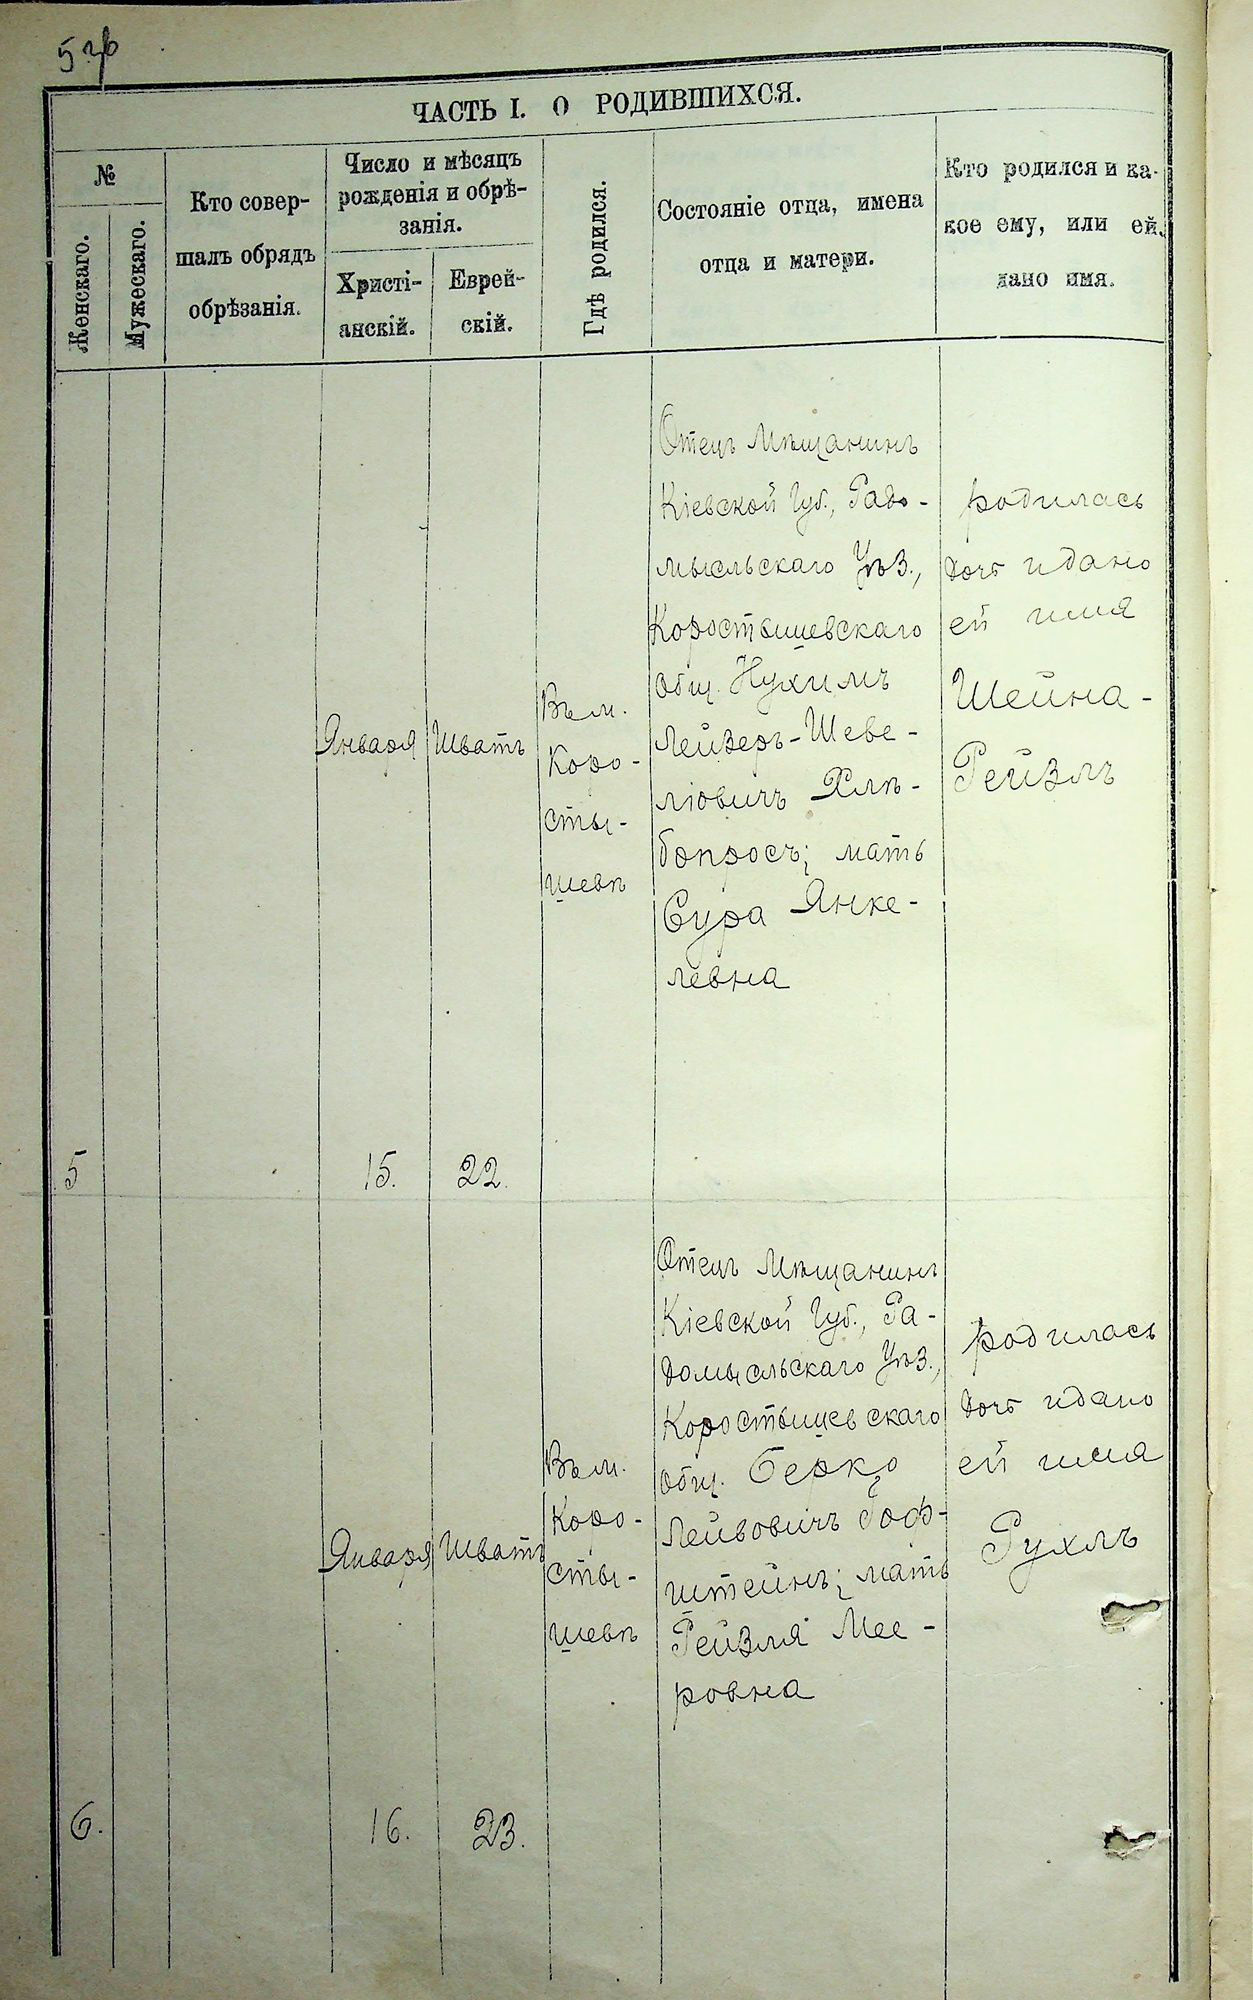 ЧАСТЬ I. О РОДИВШИХСЯ.
№
Женскаго.
Мужескаго.
Кто совер-
шалъ обрядъ
обрѣзанія.
Число и мѣсяцъ
рожденія и обрѣ-
занія.
Христі-
анскій.
Еврей-
скій.
Гдѣ родился.
Состояніе отца, имена
отца и матери.
Кто родился и ка-
кое ему, или ей,
дано имя.
5
Января
15.
Шватъ
22.
Въ м.
Коро-
сты-
шевѣ
Отецъ Мѣщанинъ
Кіевской Губ., Радо-
мысльскаго Уѣз.,
Коростышевскаго
общ. Нухимъ
Лейзеръ-Шеве-
ліовичъ Хлѣ-
бопросъ; мать
Сура Янке-
левна
родилась
дочь и дано
ей имя
Шейна-
Рейзль
6.
Января
16.
Шватъ
23.
Въ м.
Коро-
сты-
шевѣ
Отецъ Мѣщанинъ
Кіевской Губ., Ра-
домысльскаго Уѣз.,
Коростышевскаго
общ. Берко
Лейбовичъ Гоф-
штейнъ; мать
Рейзля Мее-
ровна
родилась
дочь и дано
ей имя
Рухль